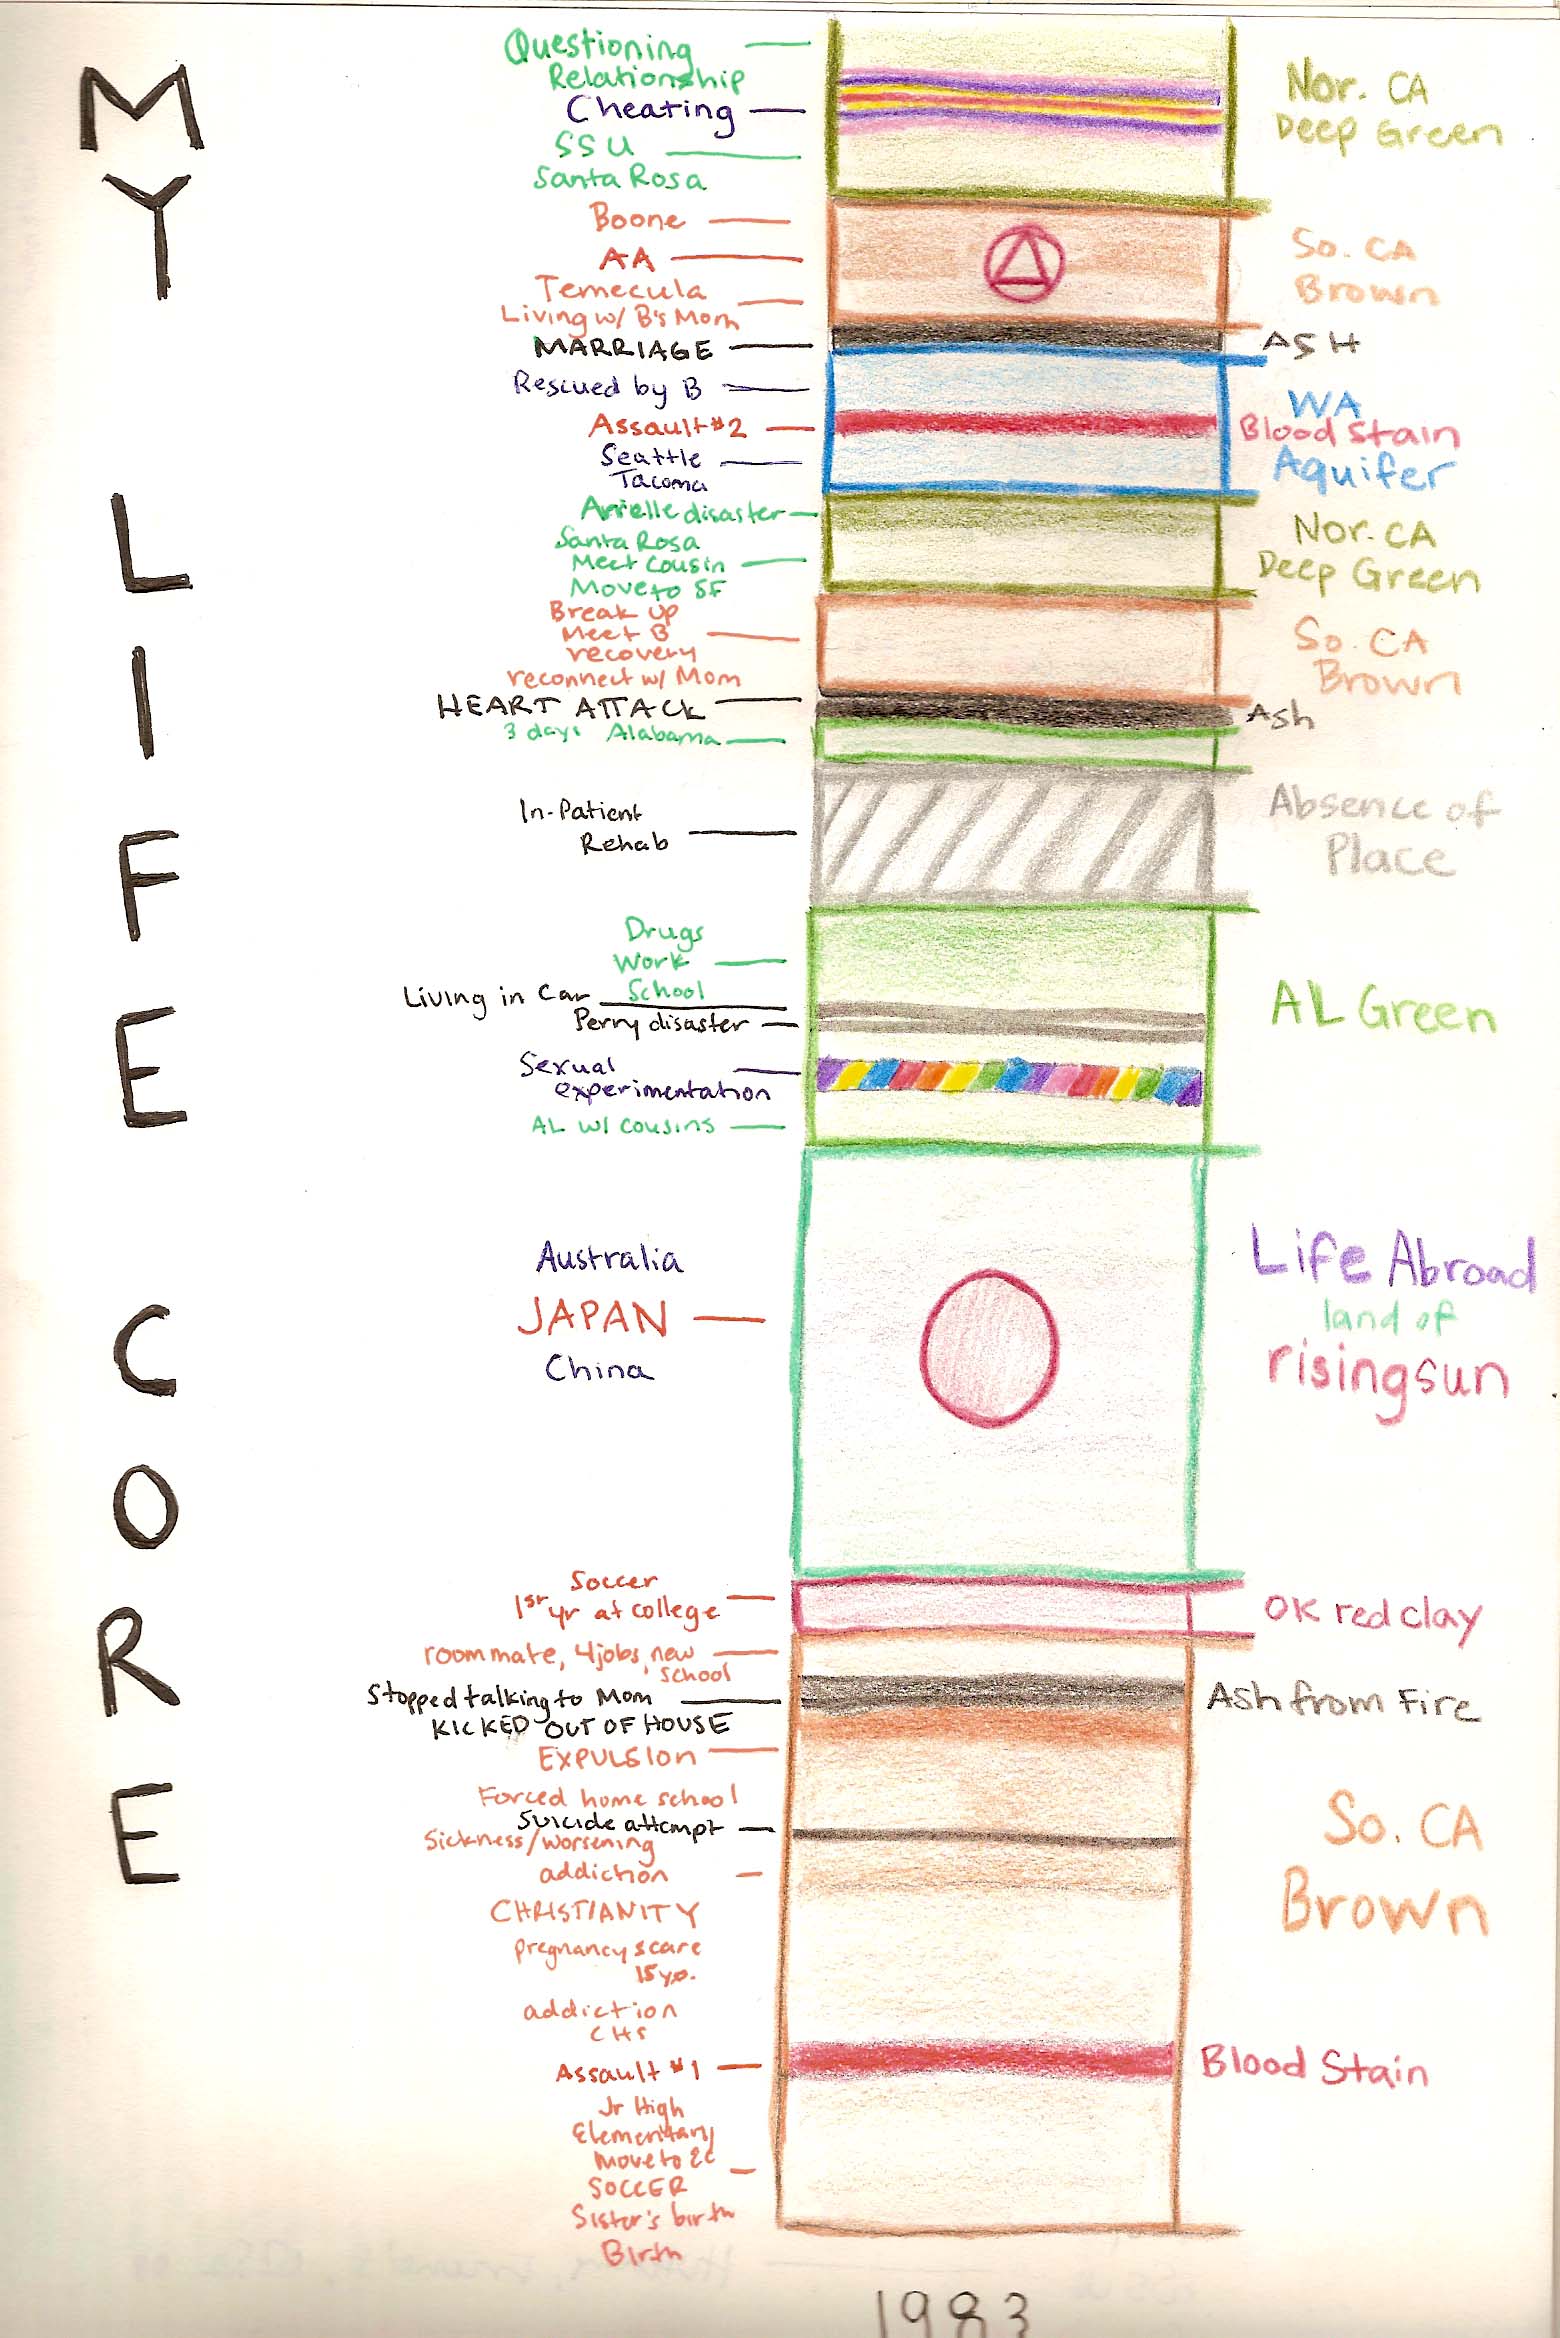 MY LIFE CORE
Questioning
Relationship
Cheating
SSU
Santa Rosa
Nor. CA
Deep Green
Boone
AA
Temecula
Living w/ B's Mom
So. CA
Brown
MARRIAGE
ASH
Rescued by B
Assault #2
Seattle
Tacoma
WA
Blood Stain
Aquifer
Arielle disaster
Santa Rosa
Meet cousin
Move to SF
Nor. CA
Deep Green
Break up
Meet B
recovery
reconnect w/ Mom
So. CA
Brown
HEART ATTACK
Ash
3 days Alabama
In-Patient
Rehab
Absence of
Place
Drugs
Work
School
Living in Car
Perry disaster
Sexual
experimentation
AL w/ cousins
AL Green
Australia
JAPAN
China
Life Abroad
land of
rising sun
Soccer
1st yr at college
OK red clay
roommate, 4 jobs, new
school
Stopped talking to Mom
KICKED OUT OF HOUSE
Ash from Fire
EXPULSION
Forced home school
Suicide attempt
Sickness/worsening
addiction
CHRISTIANITY
pregnancy scare
15 yo.
addiction
CHS
So. CA
Brown
Assault #1
Blood Stain
Jr High
Elementary
Move to EC
SOCCER
Sister's birth
Birth
1983